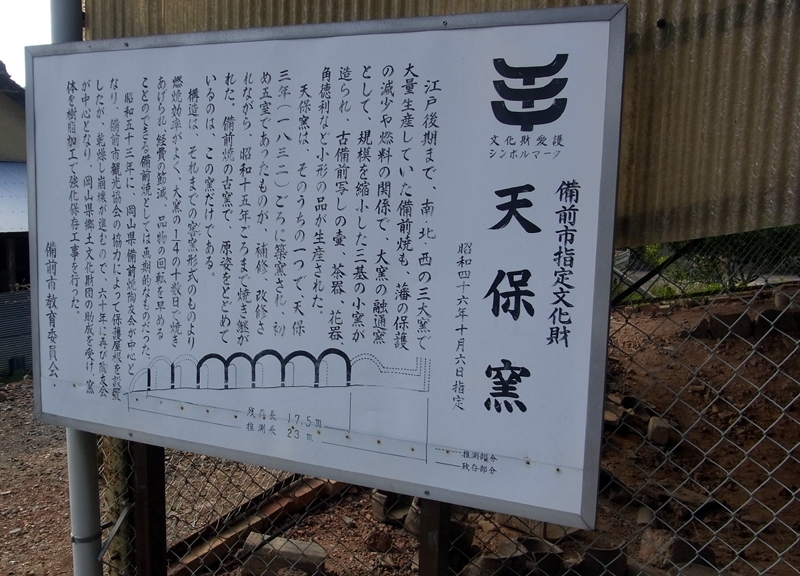 備前市指定文化財
天保窯
昭和四十六年十月六日指定
文化財愛護
シンボルマーク
江戸後期まで、南・北・西の三大窯で
大量生産していた備前焼も、藩の保護
の減少や燃料の関係で、大窯の融通窯
として、規模を縮小した三基の小窯が
造られ、古備前写しの壷、茶器、花器、
角徳利など小形の品が生産された。
天保窯は、そのうちの一つで、天保
三年(一八三二)ごろに築窯され、初
め五室であったものが、補修、改修さ
れながら、昭和十五年ごろまで焼き継が
れた。備前焼の古窯で、原姿をとどめて
いるのは、この窯だけである。
構造は、それまでの窯窯形式のものより
燃焼効率がよく、大窯の1/4の十数日で焼き
あげられ経費の節減、品物の回転を早める
ことのできる備前焼としては画期的なものだった。
昭和五十三年に、岡山県備前焼陶友会が中心と
なり、備前市観光協会の協力によって保護屋根を設置
したが、乾燥し崩壊が進むので、六十年に再び陶友会
が中心となり、岡山県郷土文化財団の助成を受け、窯
体を樹脂加工で強化保存工事を行った。
備前市教育委員会
残存長 17.5m
推測長 23m
推測部分
残存部分